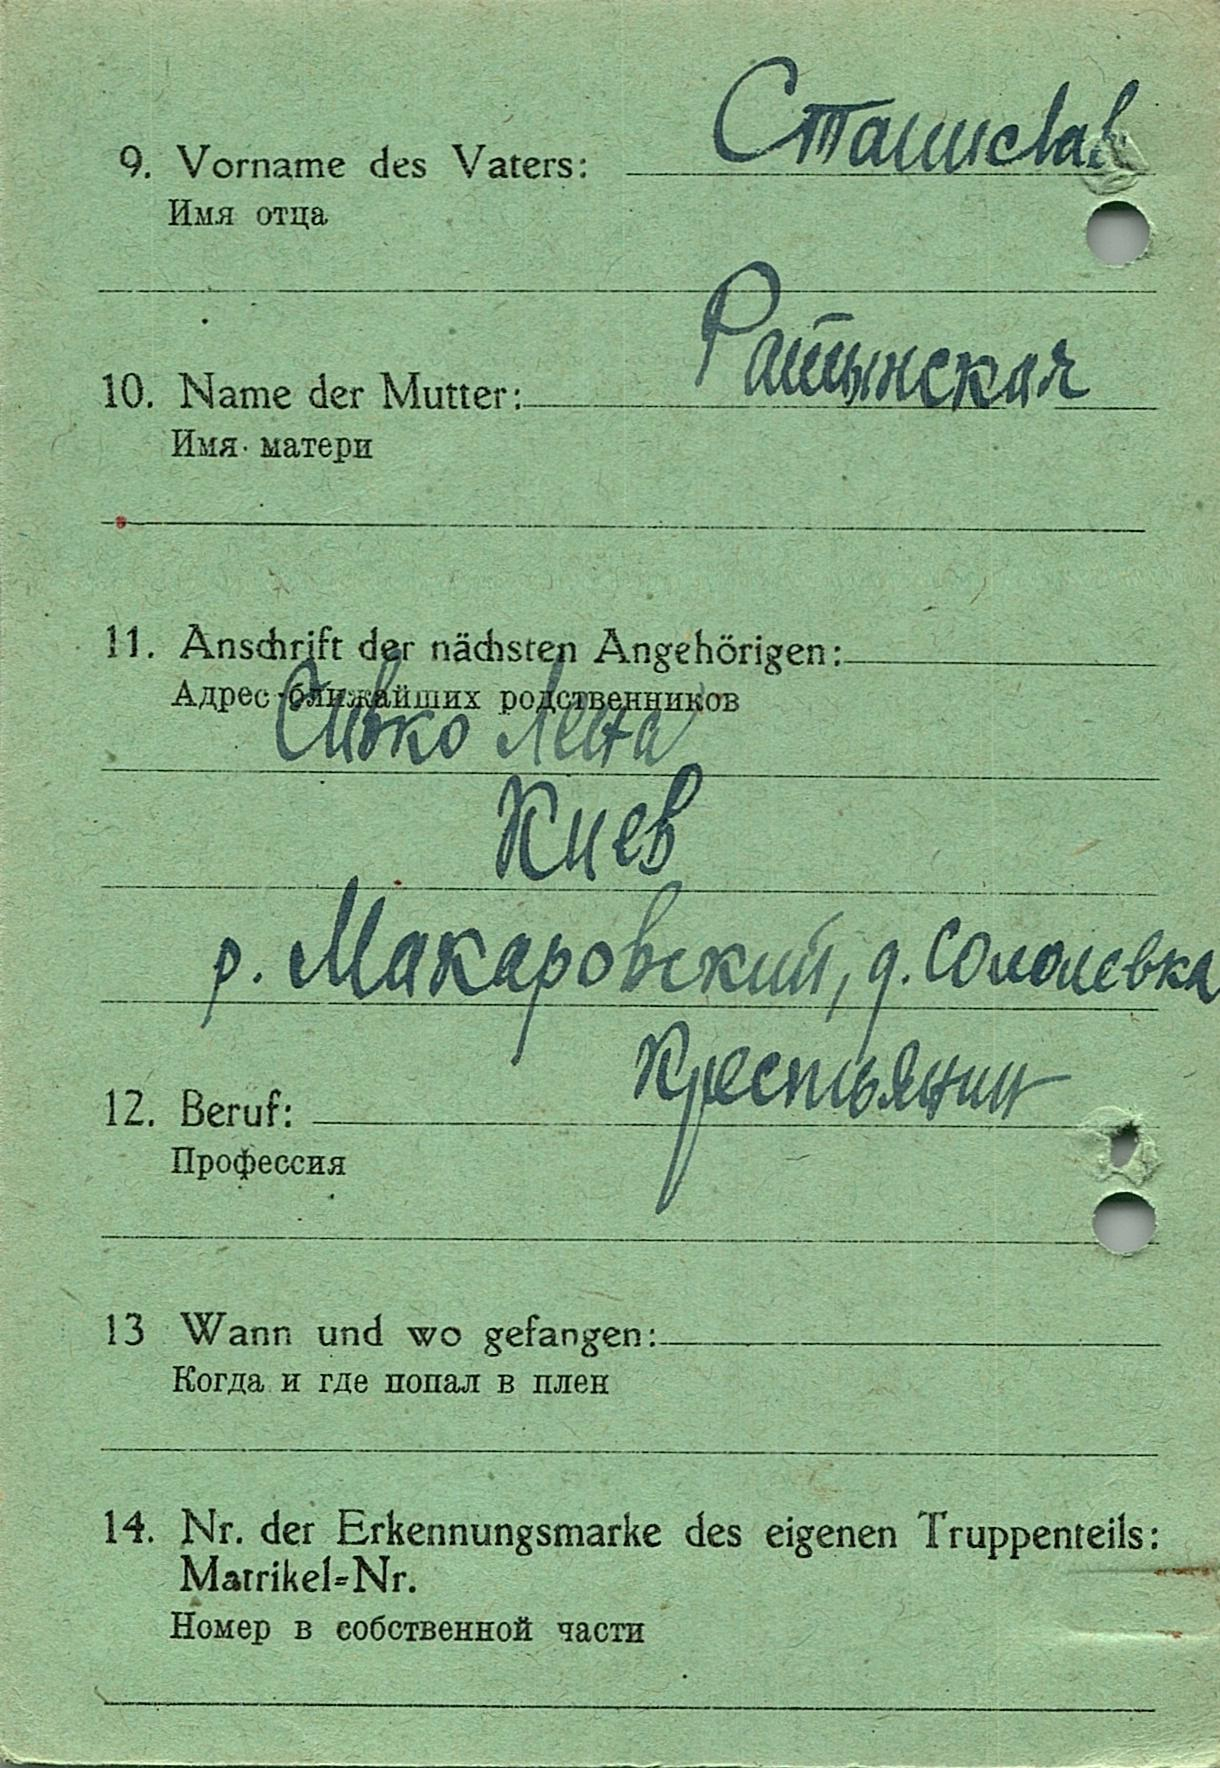 9. Vorname des Vaters: Станислав
Имя отца
10. Name der Mutter: Ратынская
Имя матери
11. Anschrift der nächsten Angehörigen:
Адрес ближайших родственников
Сивко Лена
Киев
р. Макаровский, д. Соловевка
12. Beruf: Крестьянин
Профессия
13 Wann und wo gefangen:
Когда и где попал в плен
14. Nr. der Erkennungsmarke des eigenen Truppenteils:
Matrikel=Nr.
Номер в собственной части